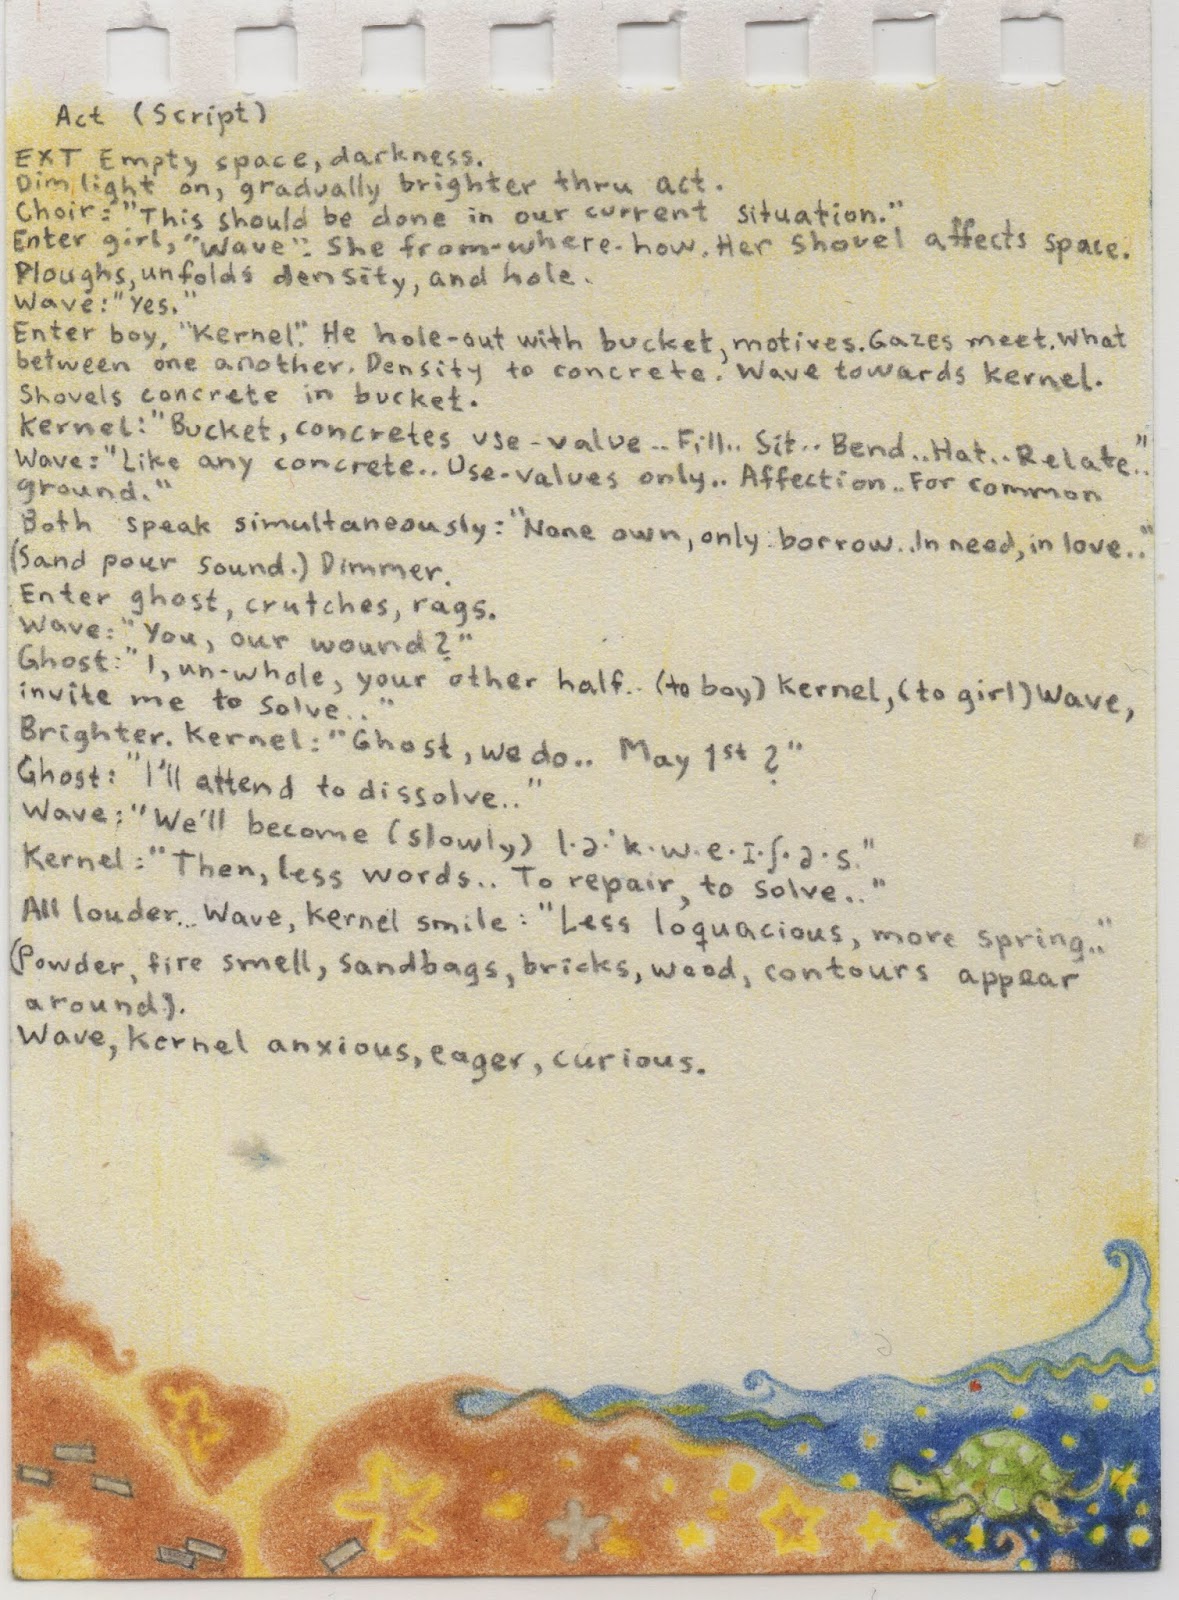 Act (Script)
EXT Empty space, darkness.
Dim light on, gradually brighter thru act.
Choir: "This should be done in our current situation."
Enter girl, "Wave". She from-where-how. Her shovel affects space.
Ploughs, unfolds density, and hole.
Wave: "Yes."
Enter boy, "Kernel". He hole-out with bucket, motives. Gazes meet. What
between one another. Density to concrete. Wave towards Kernel.
Shovels concrete in bucket.
Kernel: "Bucket, concretes use-value.. Fill.. Sit.. Bend.. Hat.. Relate.."
Wave: "Like any concrete.. Use-values only.. Affection.. For common
ground."
Both speak simultaneously: "None own, only borrow.. In need, in love.."
(Sand pour sound.) Dimmer.
Enter ghost, crutches, rags.
Wave: "You, our wound?"
Ghost: "I, un-whole, your other half.. (to boy) Kernel, (to girl) Wave,
invite me to solve.."
Brighter. Kernel: "Ghost, we do.. May 1st?"
Ghost: "I'll attend to dissolve.."
Wave: "We'll become (slowly) l·ə·'k·w·e·ɪ·ʃ·ə·s."
Kernel: "Then, less words.. To repair, to solve.."
All louder... Wave, Kernel smile: "Less loquacious, more spring.."
(Powder, fire smell, sandbags, bricks, wood, contours appear
around).
Wave, Kernel anxious, eager, curious.